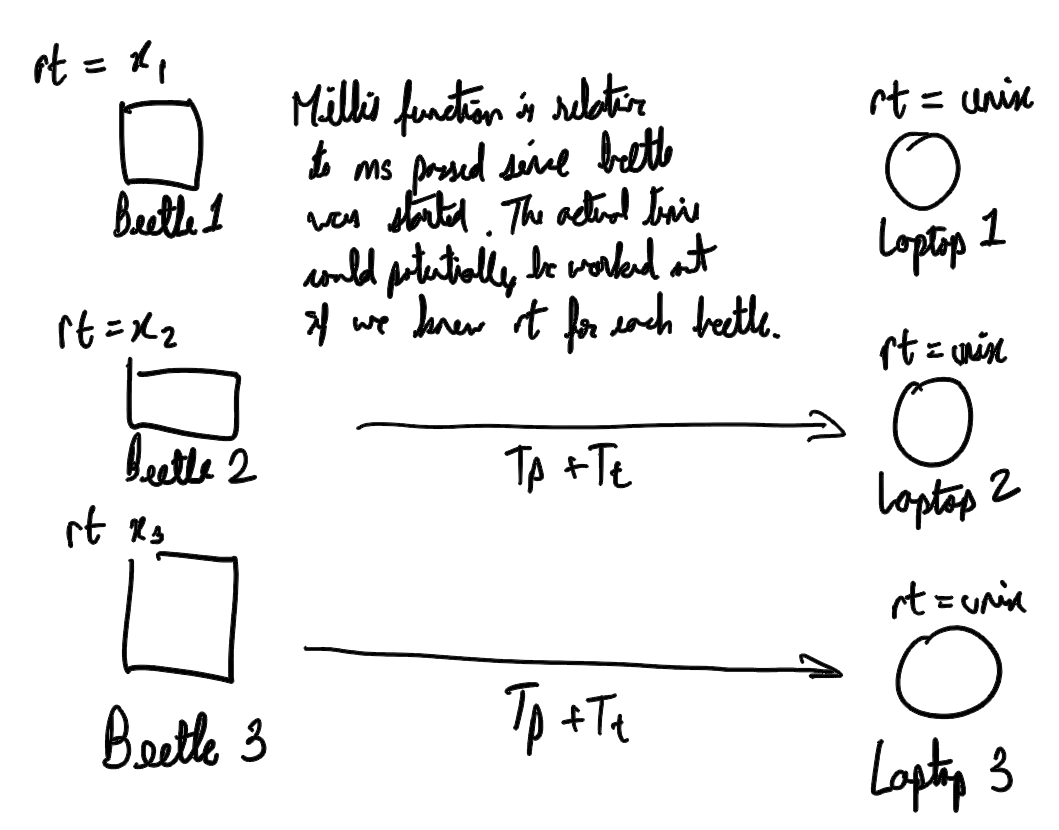 rt = x₁
Beetle 1
Millis function is relative
to ms passed since beetle
was started. The actual time
could potentially be worked out
if we knew rt for each beetle.
rt = unix
Laptop 1
rt = x₂
Beetle 2
Tp + Tt
rt = unix
Laptop 2
rt x₃
Beetle 3
Tp + Tt
rt = unix
Laptop 3